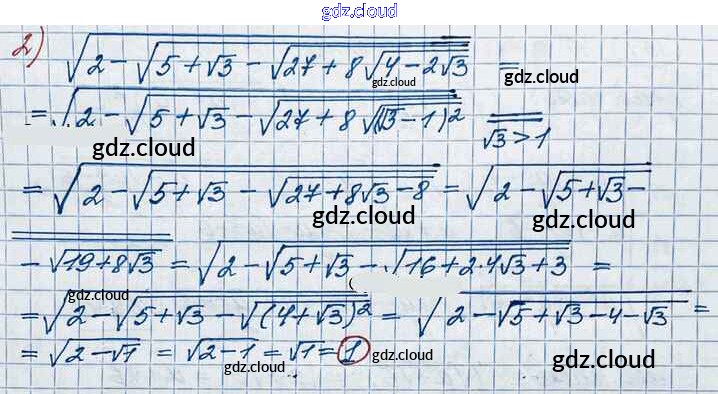 gdz.cloud
2) √(2 − √(5 + √3 − √(27 + 8√(4 − 2√3)))) =
gdz.cloud gdz.cloud
= √(2 − √(5 + √3 − √(27 + 8√((√3 − 1)²)))) = √3 > 1
gdz.cloud gdz.cloud
= √(2 − √(5 + √3 − √(27 + 8√3 − 8))) = √(2 − √(5 + √3 −
gdz.cloud gdz.cloud
− √(19 + 8√3))) = √(2 − √(5 + √3 − √(16 + 2·4√3 + 3))) =
gdz.cloud gdz.cloud
= √(2 − √(5 + √3 − √((4 + √3)²))) = √(2 − √(5 + √3 − 4 − √3)) =
= √(2 − √1) = √(2 − 1) = √1 = 1
gdz.cloud gdz.cloud gdz.cloud